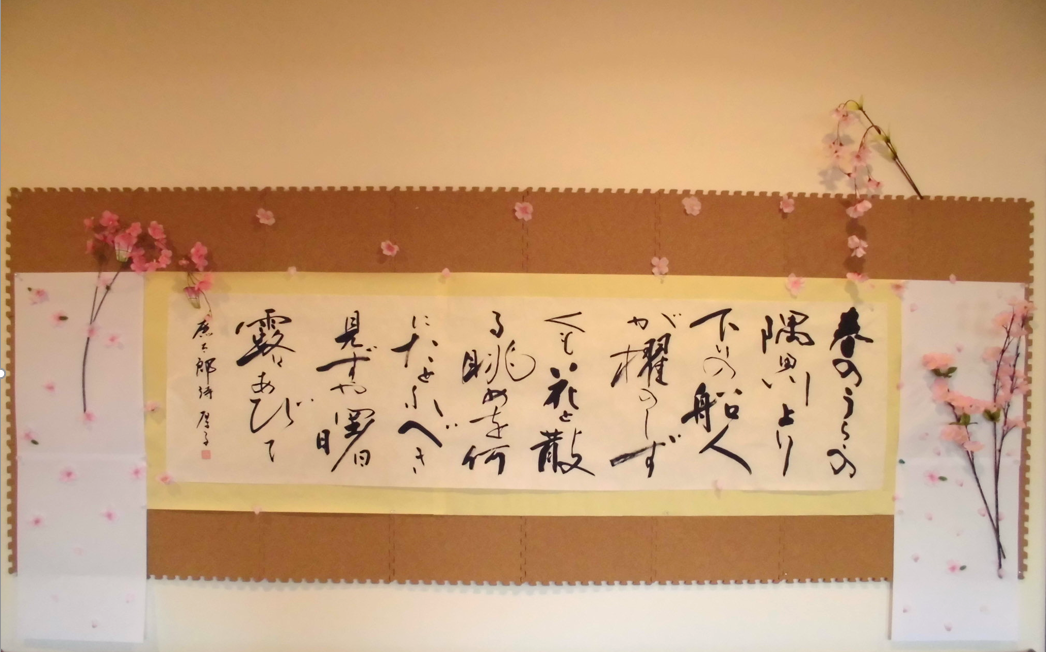 春のうらゝの
隅田川上り
下りの船人
が櫂のしず
くも花と散
る眺めを何
にたとふべき
見ずや曙
露あびて
廉太郎